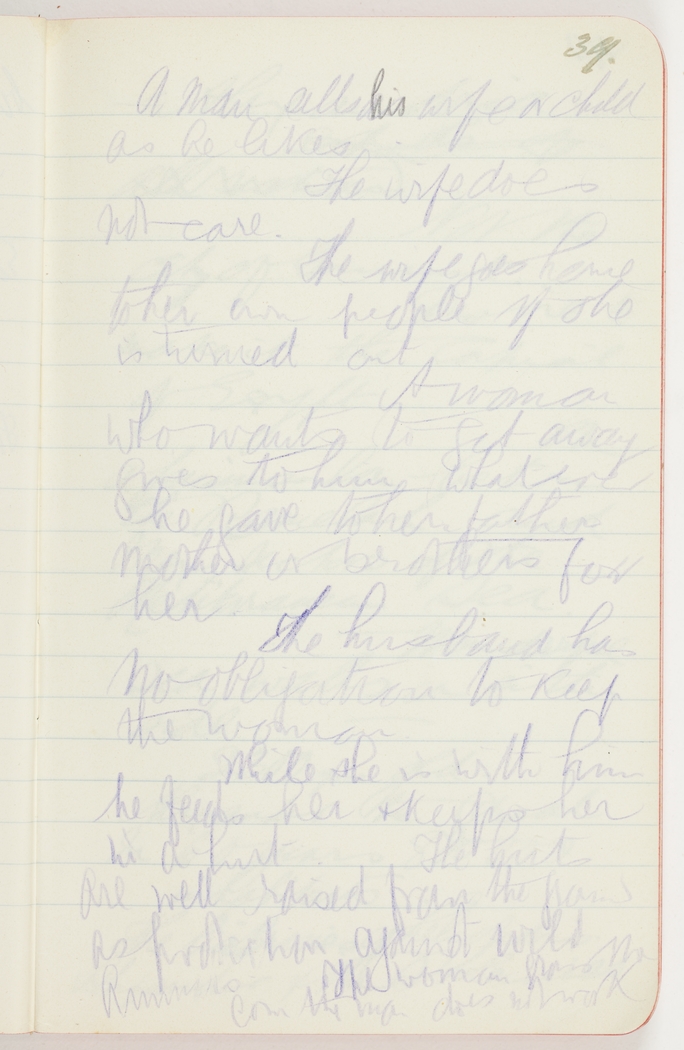 39.
A man sells his wife or child
as he likes.
The wife does
not care.
The wife goes home
to her own people if she
is turned out.
A woman
who wants to get away
gives to him what
he gave to her father
mother or brothers for
her.
The husband has
no obligation to keep
the woman.
While she is with him
he feeds her & keeps her
in a hut. The huts
are well raised from the
as protection against wild
The woman
the man does not work